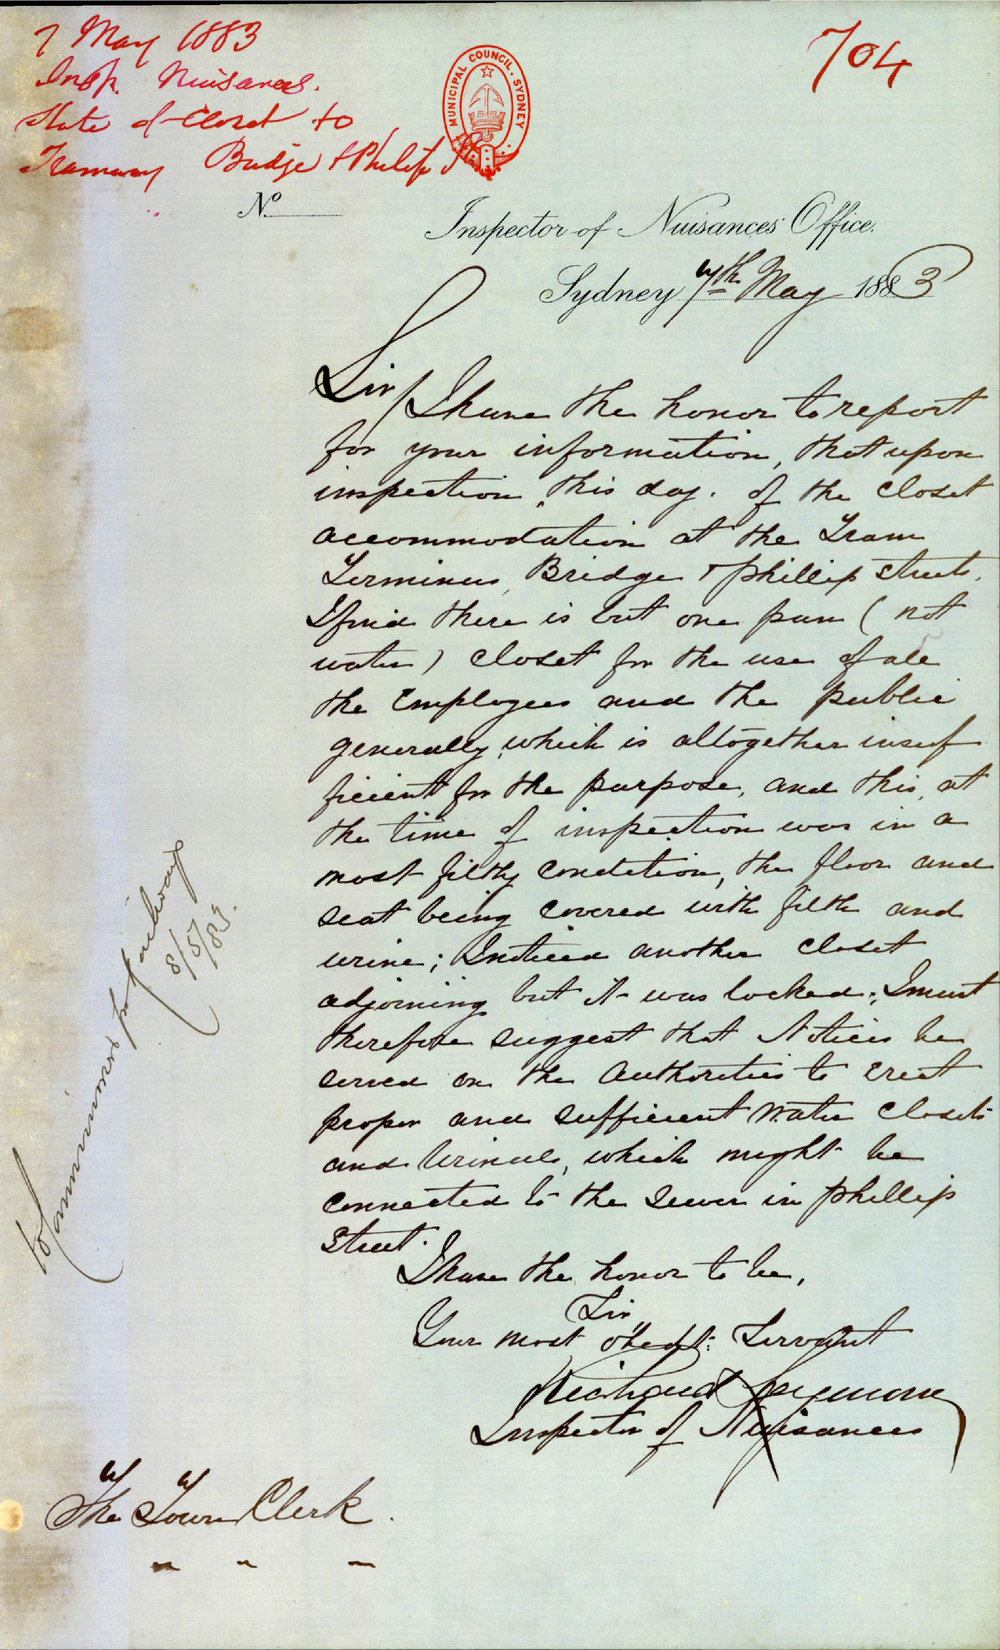 7 May 1883
Insp. Nuisances.
State of Closet to
Tramway Bridge & Philip St
704
MUNICIPAL COUNCIL. SYDNEY
No
Inspector of Nuisances' Office.
Sydney 7th May 1883
Sir, I have the honor to report
for your information, that upon
inspection, this day, of the closet
accommodation at the Tram
Terminus, Bridge & Phillip Streets.
I find there is but one pan (not
water) closet for the use of all
the Employees and the public
generally, which is altogether insuf
ficient for the purpose, and this, at
the time of inspection was in a
most filthy condition, the floor and
seat being covered with filth and
urine; I noticed another closet
adjoining but it was locked; I must
therefore suggest that Notices be
served on the Authorities to erect
proper and sufficient Water Closets
and Urinals, which might be
connected to the sewer in Phillip
Street.
I have the honor to be,
Sir
Your most obedt. Servant
Richard Seymour
Inspector of Nuisances
The Town Clerk.
To Commissioner for Railways
8/5/83.